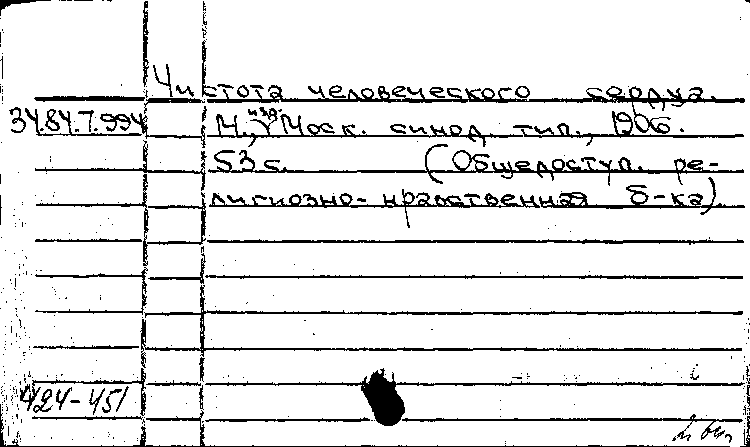 Чистота человеческого сердца.
34.84.7.994 М., изд. Моск. синод. тип., 1906.
53 с. (Общедоступ. ре-
лигиозно-нравственная б-ка).
424-451